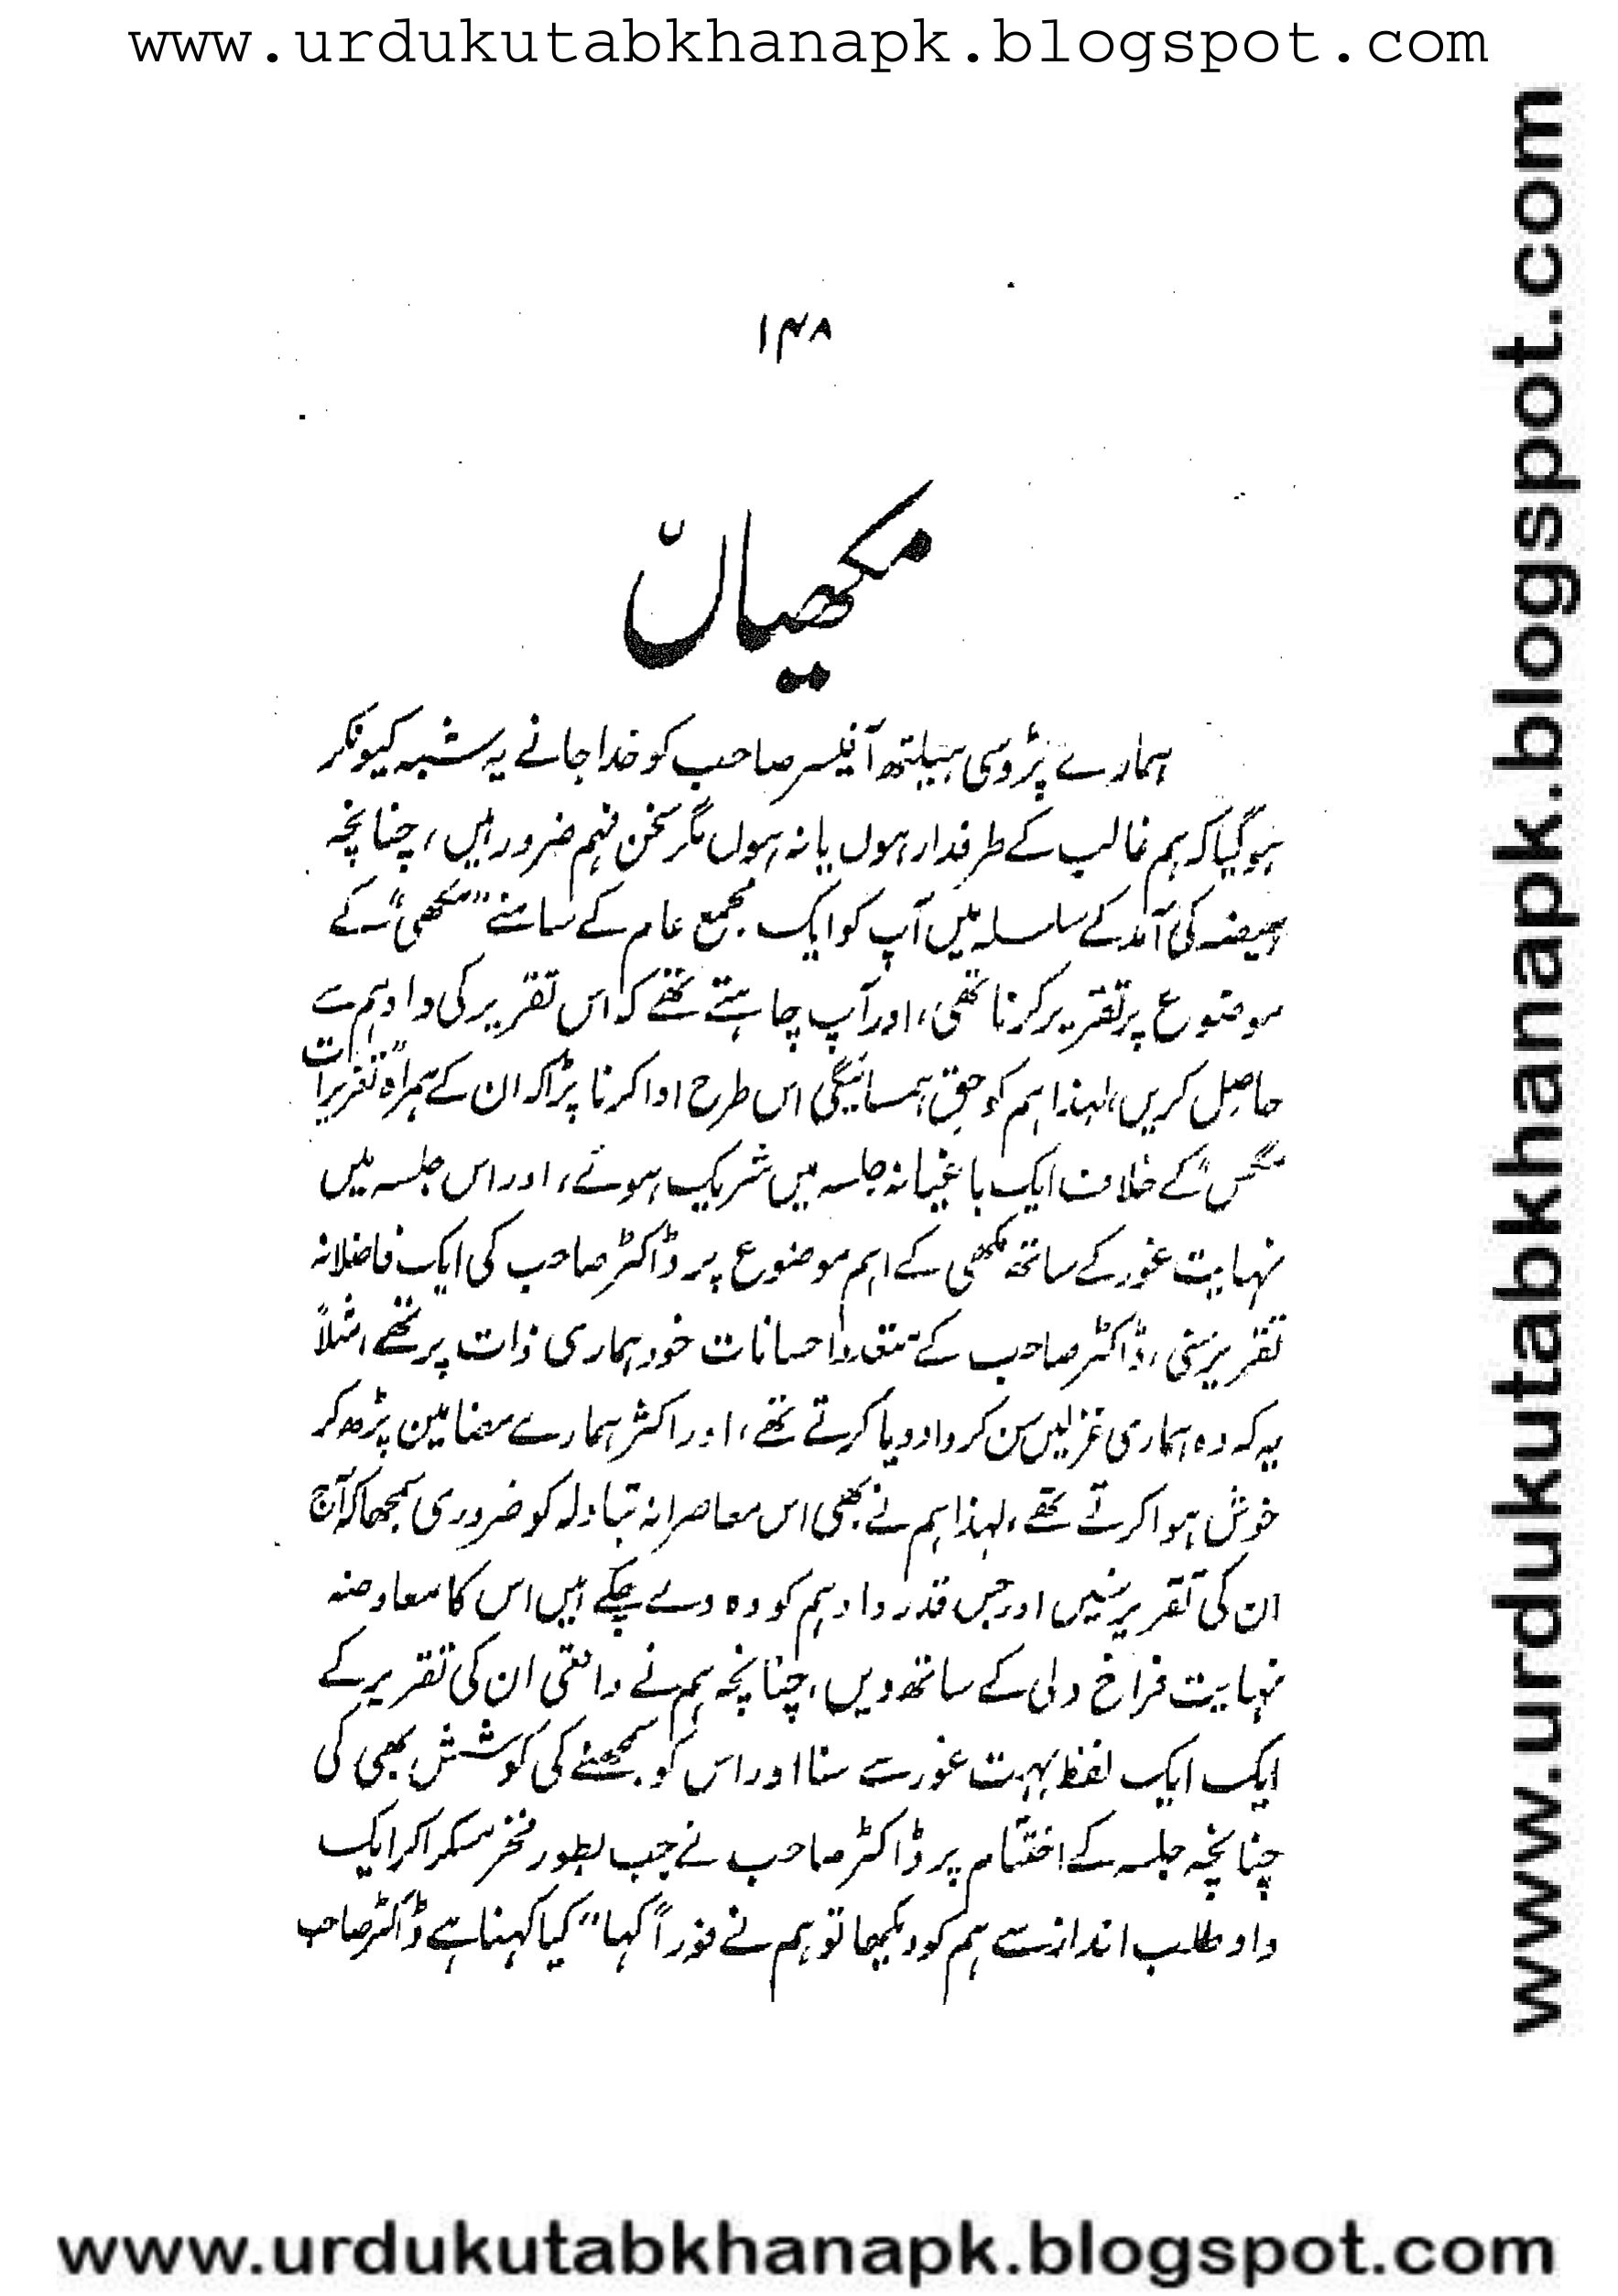 www.urdukutabkhanapk.blogspot.com
۱۴۸
مکھیاں
ہمارے پڑوسی ہیلتھ آفیسر صاحب کو خدا جانے یہ شبہ کیونکر
ہو گیا کہ ہم غالب کے طرفدار ہوں یا نہ ہوں مگر سخن فہم ضرور ہیں، چنانچہ
ہیضہ کی آمد کے سلسلہ میں آپ کو ایک مجمع عام کے سامنے "مکھی" کے
موضوع پر تقریر کرنا تھی، اور آپ چاہتے تھے کہ اس تقریر کی داد ہم سے
حاصل کریں، لہذا ہم کو حق ہمسائیگی اس طرح ادا کرنا پڑا کہ ان کے ہمراہ "تعزیرات
مگس" کے خلاف ایک باغیانہ جلسہ میں شریک ہوئے، اور اس جلسہ میں
نہایت غور کے ساتھ مکھی کے اہم موضوع پر ڈاکٹر صاحب کی ایک فاضلانہ
تقریر سنی، ڈاکٹر صاحب کے متعدد احسانات خود ہماری ذات پر تھے، مثلاً
یہ کہ وہ ہماری غزلیں سن کر داد دیا کرتے تھے، اور اکثر ہمارے مضامین پڑھ کر
خوش ہوا کرتے تھے، لہذا ہم نے بھی اس معاصرانہ تبادلہ کو ضروری سمجھا کہ آج
ان کی تقریر سنیں اور جس قدر داد ہم کو وہ دے چکے ہیں اس کا معاوضہ
نہایت فراخ دلی کے ساتھ دیں، چنانچہ ہم نے واقعی ان کی تقریر کے
ایک ایک لفظ بہت غور سے سنا اور اس کو سمجھنے کی کوشش بھی کی
چنانچہ جلسہ کے اختتام پر ڈاکٹر صاحب نے جب بطور فخر مسکرا کر ایک
داد طلب انداز سے ہم کو دیکھا تو ہم نے فوراً کہا "کیا کہنا ہے ڈاکٹر صاحب
www.urdukutabkhanapk.blogspot.com
www.urdukutabkhanapk.blogspot.com